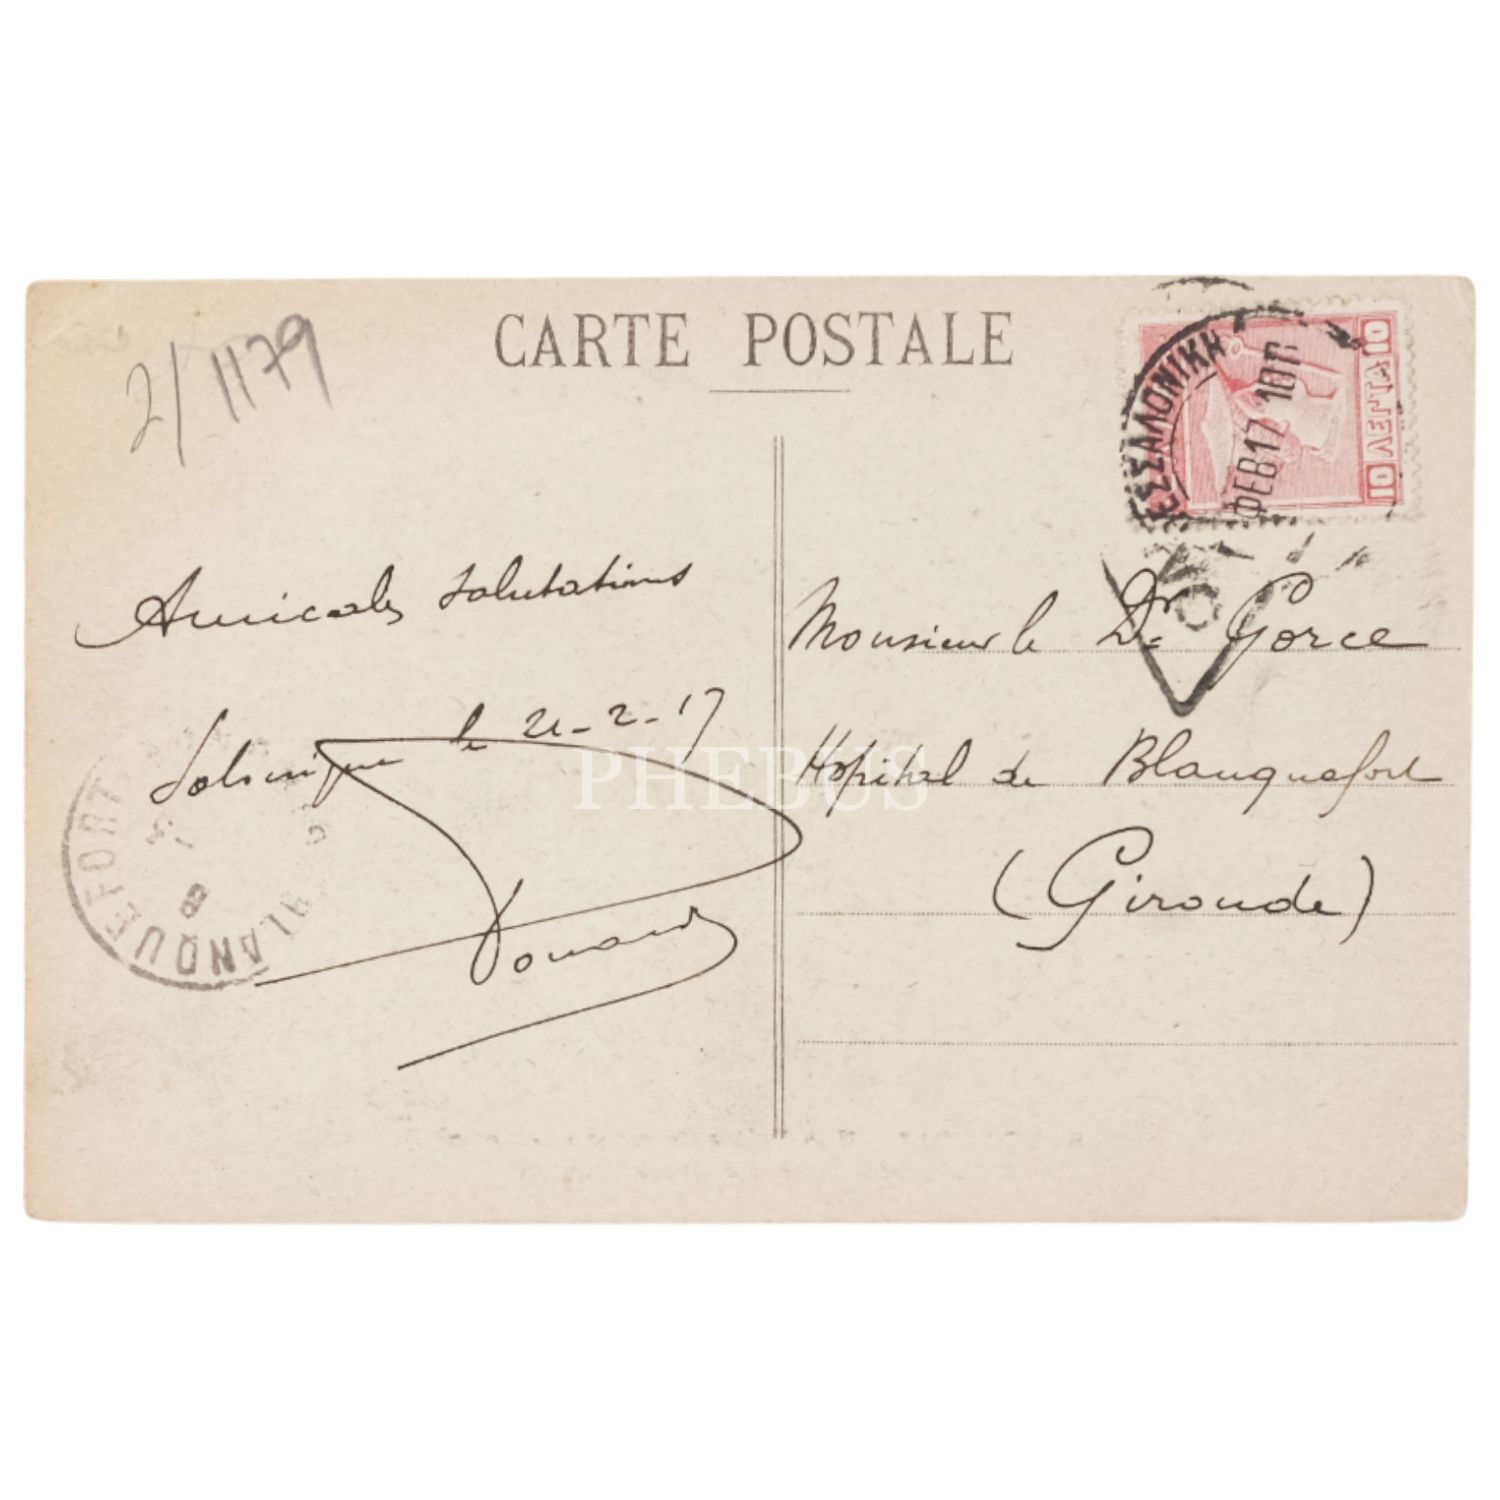 CARTE POSTALE
2/1179
ΘΕΣΣΑΛΟΝΙΚΗ
ΦΕΒ 17 10Π
10 ΛΕΠΤΑ 10
Amicales salutations
Salonique le 21-2-17
Monsieur le Dr Gorce
Hôpital de Blanquefort
(Gironde)
BLANQUEFORT
PHEBUS